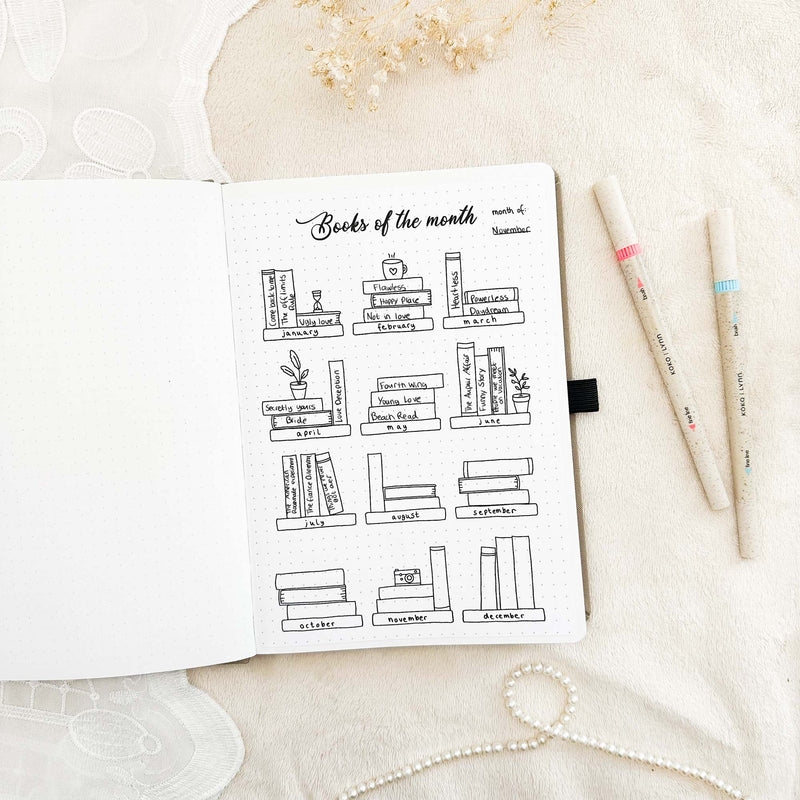 Books of the month
month of:
November
Come back to me
The off limits Rule
Ugly love
january
Flawless
Happy Place
Not in love
february
Heartless
Powerless
Daydream
march
Secretly yours
Bride
Love Deception
april
Fourth wing
Young Love
Beach Read
may
The Aupair Affair
Funny Story
People we meet
on vacation
june
The American
Roommate experiment
The Fiance Dilemma
Things we never
got over
july
august
september
october
november
december
brush
KOKO | LYNN
fine line
brush
KOKO | LYNN
fine line